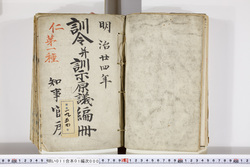 明治廿四年
訓令并訓示原議編冊
仁第一種
知事官房